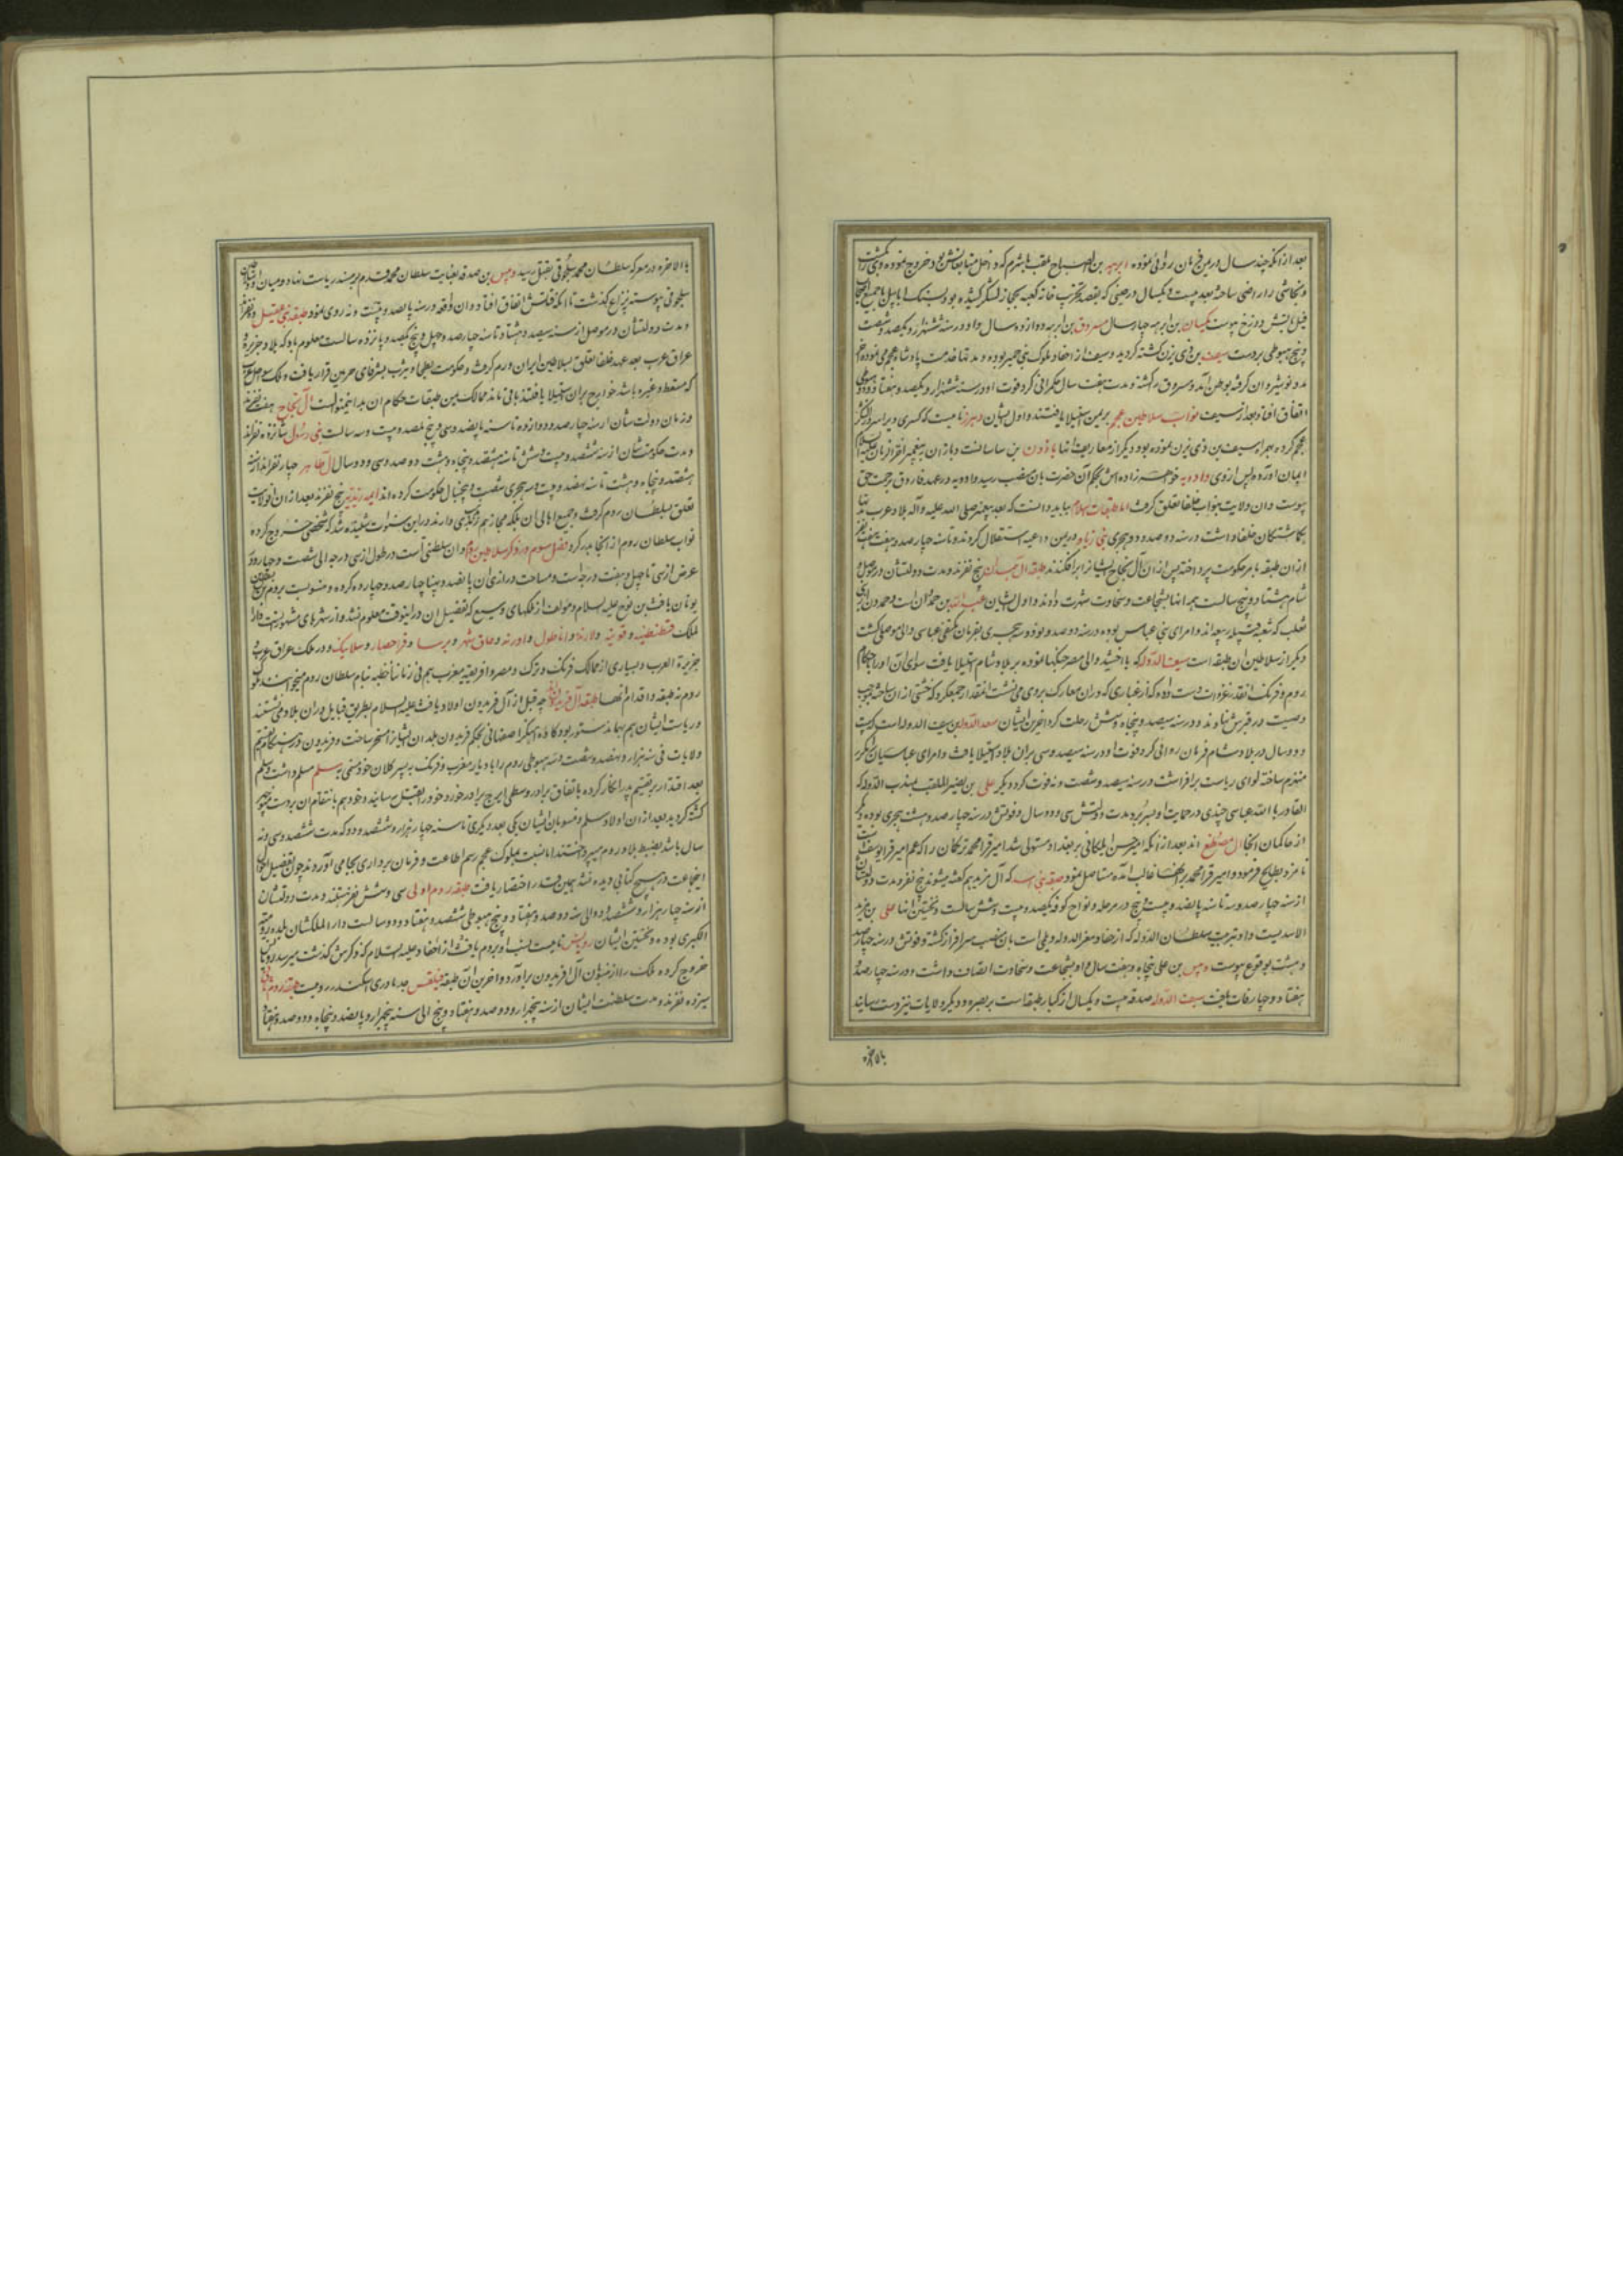 بعد از انکه چند سال در یمن فرمان روائی نموده ابرهه بن الصباح ملقب باشرم که داخل متابعانش بود خروج نموده
و نجاشی را راضی ساخته بعد بیست و یکسال در حینی که بقصد تخریب خانه کعبه بحجاز لشکر کشیده بود بسنک ابابیل با جمیع
فیل باتش دوزخ پیوست یکسان بن ابرهه چهار سال مسروق بن ابرهه دوازده سال و او در سنه ششهزار و یکصد و شصت
و پنج هبوطی بر دست سیف بن ذی یزن کشته کردید و سیف از احفاد ملوک بنی حمیر بوده و مدتها خدمت پادشاه عجم نموده
مدد نوشیروان کرفته بوطن آمد و مسروق را کشته و مدت هفت سال حکمرانی کرد فوت او در سنه ششهزار و یکصد و هفتاد و دو
اتفاق افتاد بعد از سیف نواب سلاطین عجم بر یمن استیلا یافتند و اول ایشان وهرز نامیست که کسری ویرا سردار لشکر
عجم کرده همراه سیف بن ذی یزن نموده بود دیکر از معاریف انها باذون بن ساسانست و باذان به پیغمبر آخر الزمان
ایمان اورده پس ازوی دادویه خواهرزاده اش بحکم آن حضرت بان منصب رسید و دادویه در عهد فاروق برحمت حق
پیوست و ان ولایت بنواب خلفا تعلق کرفت اما طبقات اسلام بباید دانست که بعد پیغمبر صلی الله علیه و آله بلاد عرب
بکاشتکان خلفا داشت در سنه دو صد و دو هجری بنی زیاد در یمن داعیه استقلال کردند و تا سنه چهار صد و هفت
ازان طبقه بامر حکومت پرداختند پس ازان آل نجاح ایشانرا برافکندند طبقه آل حمدان پنج نفرند و مدت دولتشان در موصل
شام هشتاد و پنج سالست همه انها بشجاعت و سخاوت شهرت دارند و اول ایشان عبدالله بن حمدان است و حمدون
تغلب که شعبه قبیله ربیعه اند و امرای بنی عباس بوده در سنه دو صد و نود و سه هجری بفرمان مکتفی عباسی والی موصل کشت
دیکر از سلاطین ان طبقه است سیف الدوله که با اخشید والی مصر جنکها نموده بر بلاد شام استیلا یافت سوای ان اورا با حکام
روم و فرنک انقدر غزوات دست داده که از غباری که دران معارک بر وی می نشست انقدر جمع کرد که خشتی ازان ساخته بموجب
وصیت در قبرش نهادند و در سنه سیصد و پنجاه و شش رحلت کرد اخرین ایشان سعد الدوله بن سیف الدوله است که بیست
و دو سال در بلاد شام فرمان روائی کرد فوت او در سنه سیصد و سی بران بلاد استیلا یافت و امرای عباسیان را مکرر
منهزم ساخته لوای ریاست برافراشت در سنه سیصد و شصت و نه فوت کرد دیکر علی بن نصیر الملقب بمهذب الدوله که
القادر بالله عباسی چندی در حمایت او بسر برد مدت دولتش سی و دو سال و فوتش در سنه چهار صد و هشت هجری بوده دیکر
از حاکمان انجا آل مصطنع اند بعد از انکه امیر حسن ایلکانی بر بغداد مستولی شد امیر قرا محمد ترکمان را که عم امیر قرا یوسف است
نامزد بطایح فرمود و امیر قرا محمد بر انها غالب آمده مستاصل نمود طبقه بنی اسد که آل مزید هم کفته میشوند پنج نفر و مدت دولتشان
از سنه چهار صد و سه تا سنه پانصد و بیست و پنج در مرحله و نواح کوفه یکصد و بیست و شش سالست و نخستین انها علی بن مزید
الاسدیست و او بتربیت سلطان الدوله که از احفاد معز الدوله دیلمی است بان منصب سرافراز کشته و فوتش در سنه چهار صد
و هشت بوقوع پیوست دبیس بن علی پنجاه و هفت سال و او بشجاعت و سخاوت اتصاف داشت و در سنه چهار صد و
هفتاد و چهار وفات یافت سیف الدوله صدقه بیست و یکسال از کبار طبقه است بر بصره و دیکر ولایات نیز دست رسانید
بالاخره
بالاخره در معرکه سلطان محمد سلجوقی بقتل رسید دبیس بن صدقه بعنایت سلطان محمد قدم بر مسند ریاست نهاد و میان او و
سلجوقی پیوسته نزاع کذشت تا انکه قتلش اتفاق افتاد و ان واقعه در سنه پانصد و بیست و نه روی نمود طبقه بنی عقیل
و مدت دولتشان در موصل از سنه سیصد و هشتاد تا سنه چهار صد و چهل و پنج یکصد و پانزده سالست معلوم باد که بلاد جزیره و
عراق عرب بعد عهد خلفا تعلق بسلاطین ایران و روم کرفت و حکومت بطحا و یثرب بشرفای حرمین قرار یافت و ملک سواحل عرب
که مسقط و غیره باشد خوارج بران استیلا یافتند باقی ماند ممالک یمن طبقات حکام ان بدانمنوالست آل نجاح هفت نفرند
و زمان دولت شان از سنه چهار صد و دوازده تا سنه پانصد و سی و پنج یکصد و بیست و سه سالست بنی رسول شانزده نفرند
و مدت حکومت شان از سنه ششصد و بیست و شش تا سنه هشتصد و پنجاه و هشت دو صد و سی و دو سال آل طاهر چهار نفرند از سنه
هشتصد و پنجاه و هشت تا سنه نهصد و بیست و سه هجری شصت و پنجسال حکومت کرده اند ایمه زیدیه پنج نفرند بعد ازان انولایت
تعلق بسلطان روم کرفت و جمیع اهالی ان بلکه حجاز هم زیدی دارند در این سنوات شنیده شد که شخصی خروج کرده
نواب سلطان روم از انجا بدر کرد فصل سوم در ذکر سلاطین روم و ان سلطنتی است در طول از سی درجه الی شصت و چهار و در
عرض از سی تا چهل و هفت درجه است و مساحت درازی ان پانصد و پهنا چهار صد و چهارده کرده و منسوبست بروم بن
یونان یافث بن نوح علیه السلام و مؤلف از ملکهای وسیع که تفصیل ان در اینوقت معلوم نشد و از شهرهای مشهور اینست دار
الملک قسطنطنیه و قونیه و لارنده و اناطول و ادرنه و صاق شهر و برسا و قراحصار و سلانیک و در ملک عراق عرب و
جزیرة العرب و بسیاری از ممالک فرنک و ترک و مصر و افریقیه مغرب هم فی زماننا خطبه بنام سلطان روم میخوانند
روم نه طبقه و اقدام انها طبقه آل فریدون اند چه قبل از آل فریدون اولاد یافث علیه السلام بطریق قبایل دران بلاد می نشستند
و ریاست ایشان هم بهمان دستور بود کاوه آهنکر اصفهانی بحکم فریدون بلد ان ایشانرا مسخر ساخت و فریدون در هنکام تقسیم
ولایات فی سنه هزار و نهصد و شصت و نه هبوطی روم را با دیار مغرب و فرنک به پسر کلان خود مسمی به سلم مسلم داشت و سلم
بعد اقتدار بر تقسیم پدر انکار کرده باتفاق برادر وسطی ایرج برادر خورد خود را بقتل رسانید و خود هم بانتقام ان بر دست منوچهر
کشته کردید بعد از ان اولاد سلم و منسوبان ایشان یکی بعد دیکری تا سنه چهار هزار و ششصد و دو که مدت ششصد و سی و نه
سال باشد بضبط بلاد روم میپرداختند اما نسبت بملوک عجم رسم اطاعت و فرمان برداری بجا می آوردند چون تفصیل احوال
انجماعت در هیچ کتابی دیده نشد بهمین قدر اختصار یافت طبقه روم اولی سی و شش نفر هستند و مدت دولتشان
از سنه چهار هزار و ششصد و دو الی سنه دو صد و هفتاد و پنج هبوطی ششصد و هفتاد و دو سالست دار الملکشان بلده رومیه
الکبری بوده و نخستین ایشان رومیش نامیست نسب او بروم یافث از احفاد علیه السلام که ذکرش کذشت میرسد
خروج کرده ملک را از منسوبان آل فریدون برآورد و اخرین ان طبقه فیلقس جد مادری اسکندر رومیست طبقه روم ثانی
سیزده نفرند و مدت سلطنت ایشان از سنه پنجهزار و دو صد و هفتاد و پنج الی سنه پنجهزار و پانصد و پنجاه و دو دو صد و هفتاد